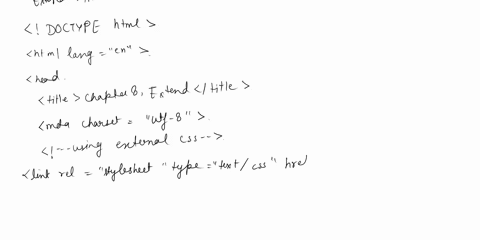 <! DOCTYPE html >
<html lang = "en" >.
<head.
<title > chapter 8, Extend </title >
<meta charset = "utf-8" >.
<!---using external css-->
<lint rel = "stylesheet " type = "text/css" href